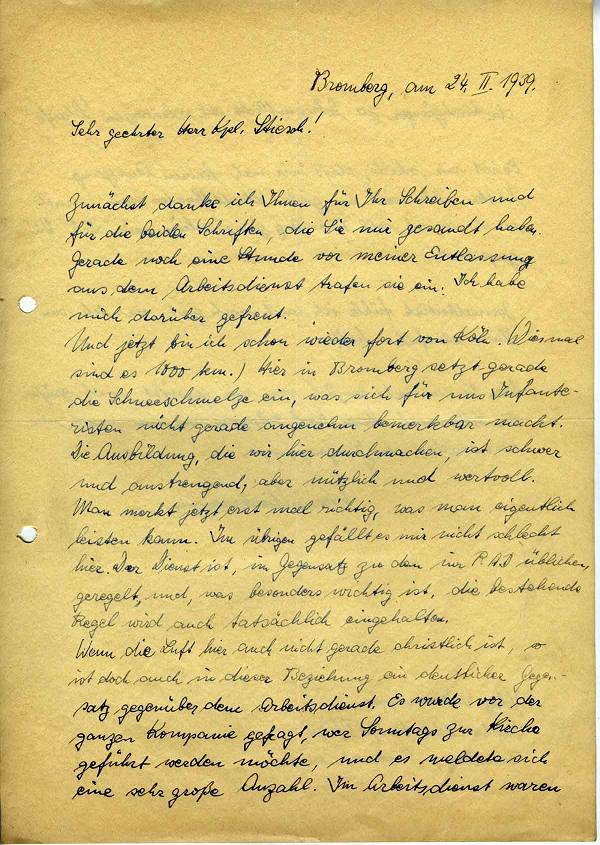 Bromberg, am 24. II. 1939.
Sehr geehrter Herr Kpl. Stiesch!
Zunächst danke ich Ihnen für Ihr Schreiben und
für die beiden Schriften, die Sie mir gesandt haben.
Gerade noch eine Stunde vor meiner Entlassung
aus dem Arbeitsdienst trafen sie ein. Ich habe
mich darüber gefreut.
Und jetzt bin ich schon wieder fort von Köln. (Diesmal
sind es 1000 km.) Hier in Bromberg setzt gerade
die Schneeschmelze ein, was sich für uns Infante-
risten nicht gerade angenehm bemerkbar macht.
Die Ausbildung, die wir hier durchmachen, ist schwer
und anstrengend, aber nützlich und wertvoll.
Man merkt jetzt erst mal richtig, was man eigentlich
leisten kann. Im übrigen gefällt es mir nicht schlecht
hier. Der Dienst ist, im Gegensatz zu dem im R.A.D üblichen,
geregelt, und, was besonders wichtig ist, die bestehende
Regel wird auch tatsächlich eingehalten.
Wenn die Luft hier auch nicht gerade christlich ist, so
ist doch auch in dieser Beziehung ein deutlicher Gegen-
satz gegenüber dem Arbeitsdienst. Es wurde vor der
ganzen Kompanie gefragt, wer Sonntags zur Kirche
geführt werden möchte, und es meldete sich
eine sehr große Anzahl. Im Arbeitsdienst waren